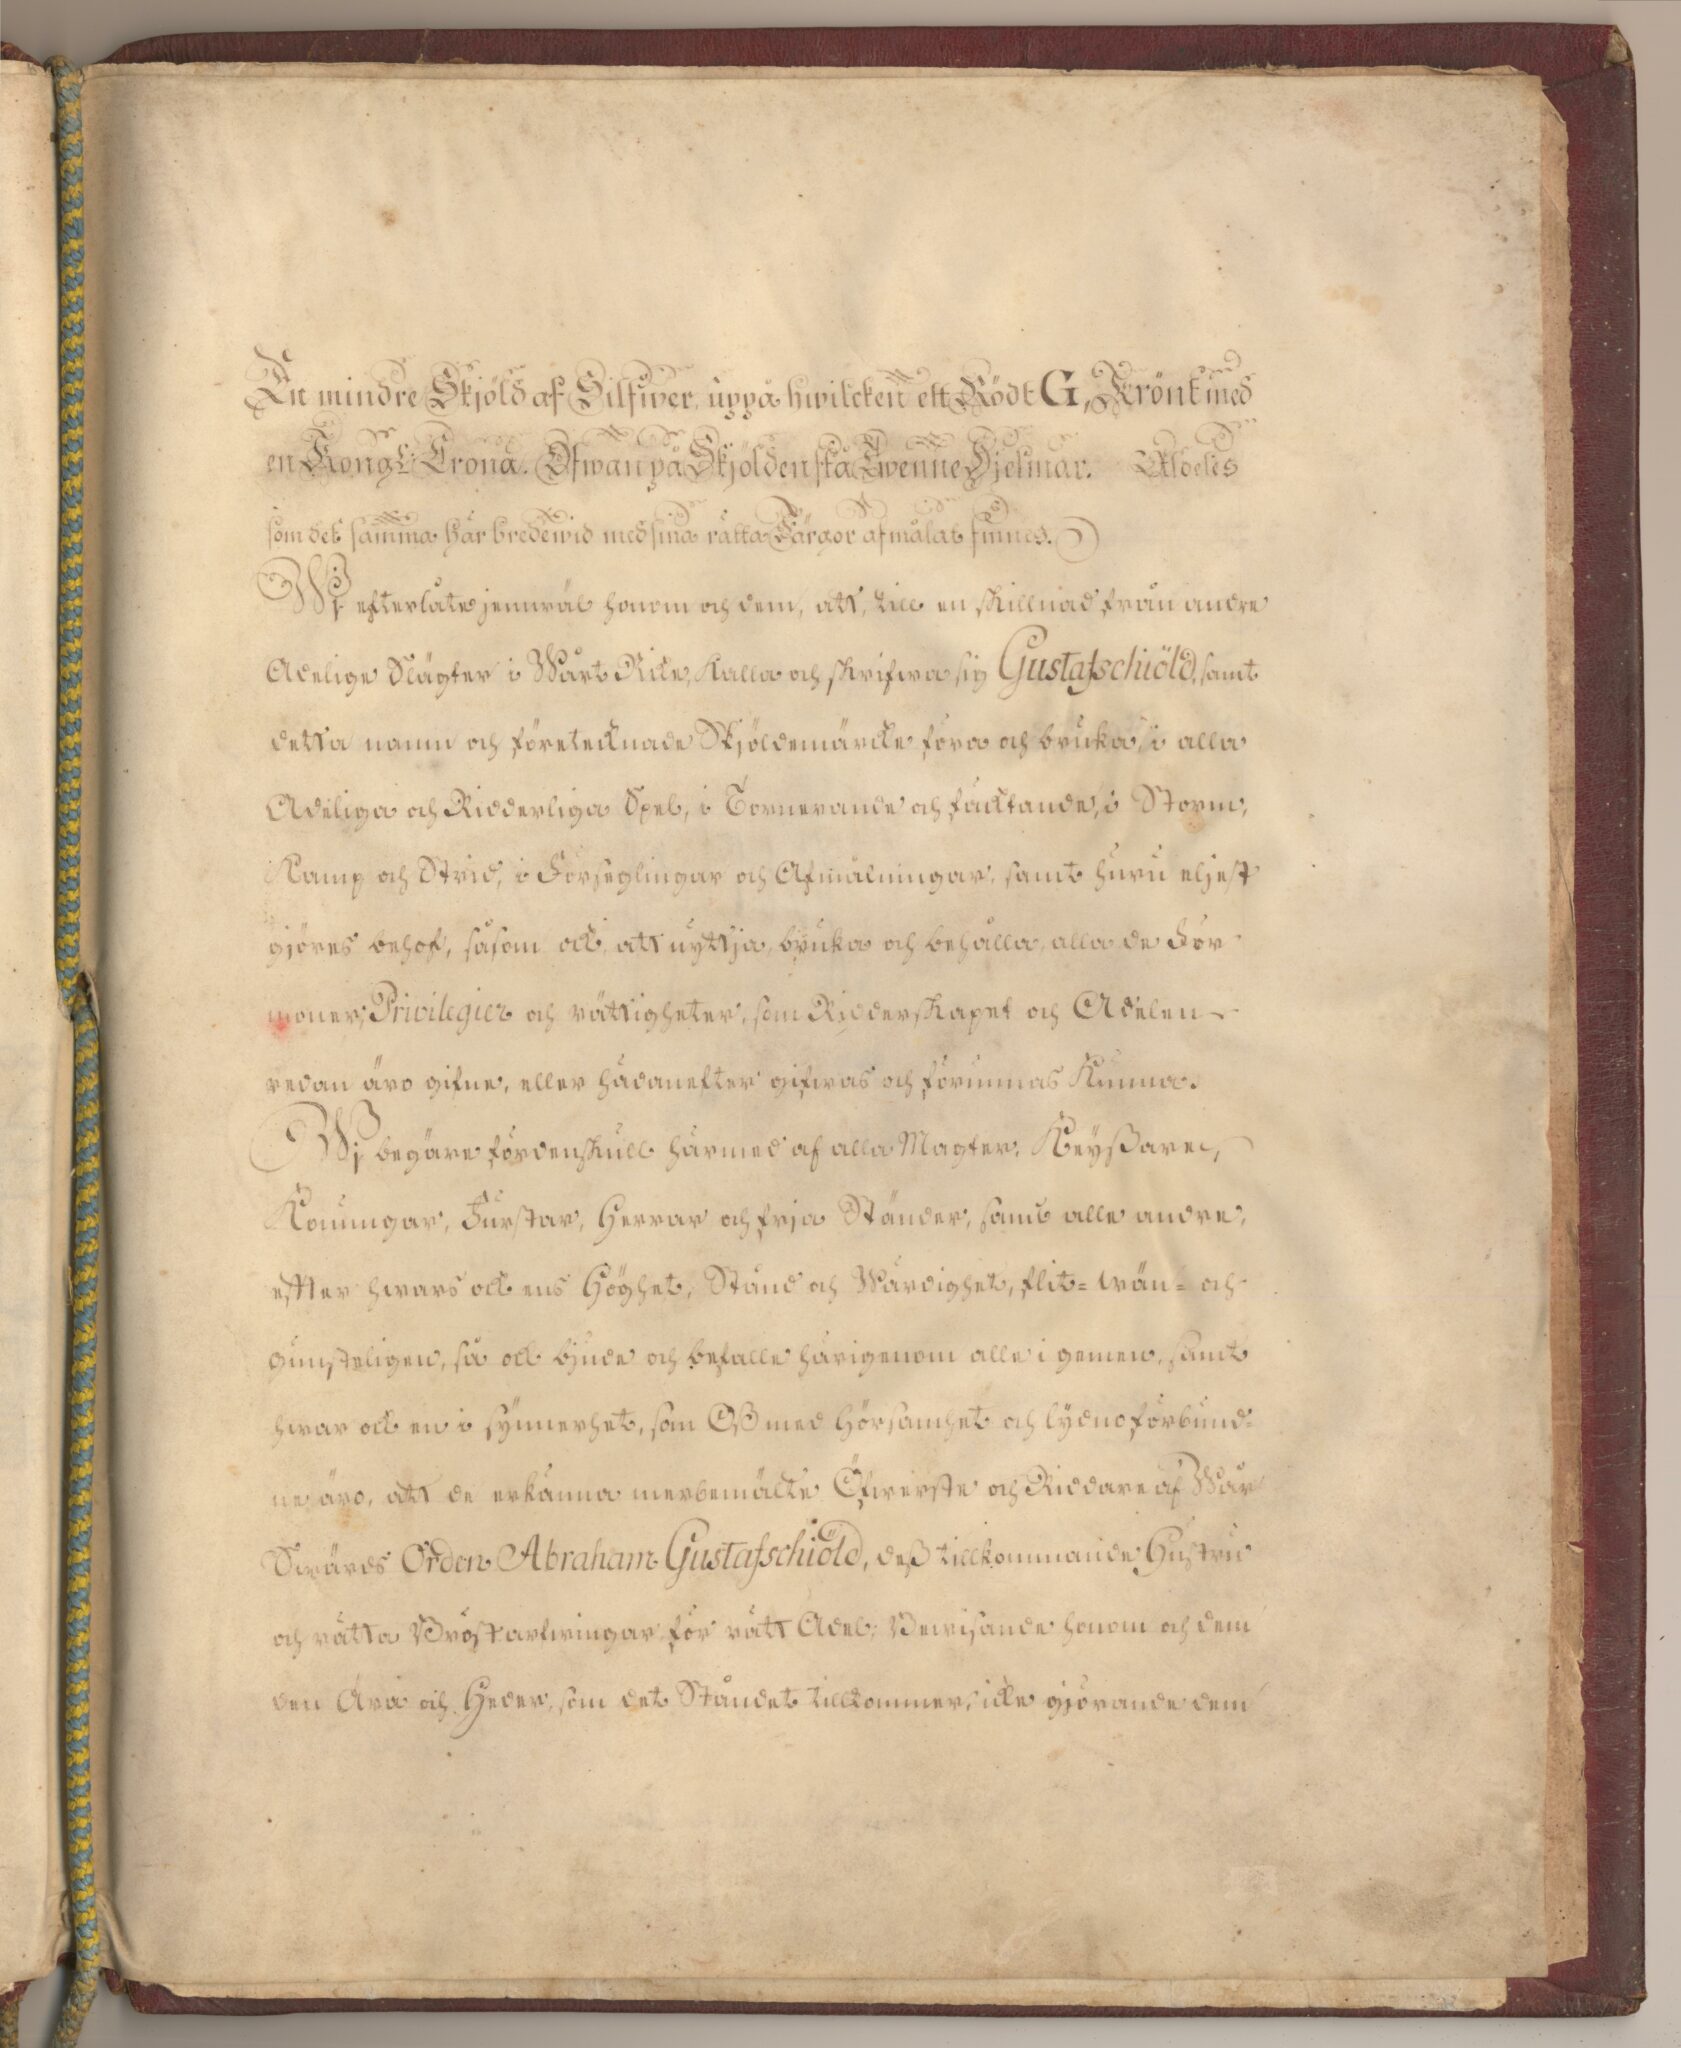 En mindre Skjöld af Silfwer, uppå hwilcken ett Rödt G, Krönt med
en Kongl: Crona. Ofwan på Skjölden stå Twenne Hjelmar. Aldeles
som det samma här bredewid med sina rätta Färgor afmålat finnes.
Wj efterlåte jemwäl honom och dem, att, till en skillnad från andre
Adelige Slägter i Wårt Rike, Kalla och skrifwa sig Gustafschiöld, samt
detta namn och företecknade Skjöldemärcke föra och bruka, i alla
Adeliga och Ridderliga Spel, i Tornerande och fäcktande, i Storm,
Kamp och Strid, i Förseglingar och Afmålningar, samt huru eljest
gjöres behof, såsom ock, att nyttja, bruka och behålla, alla de För-
moner, Privilegier och rättigheter, som Ridderskapet och Adelen
redan äro gifne, eller hädanefter gifwas och förunnas Kunna.
Wj begäre fördenskull härmed af alla Magter, Keyßare,
Konungar, Furstar, Herrar och frja Ständer, samt alle andre,
efter hwars ock ens Höghet, Stånd och Wärdighet, flit= wän= och
gunsteligen, så ock bjude och befalle härigenom alle i gemen, samt
hwar ock en i synnerhet, som Oß med Hörsamhet och lydno förbund=
ne äro, att de erkänna merbemälte Öfwerste och Riddare af Wår
Swärds Orden Abraham Gustafschiöld, deß tillkommande Hustru
och rätta Bröstarfwingar för rätt Adel; Bewisande honom och dem
den Ära och Heder, som det Ståndet tillkommer, icke gjörande dem